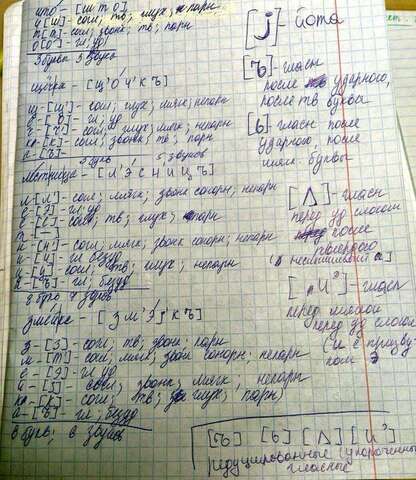 что - [ш т о]
ч [ш] согл; тв; глух; непарн
т [т] согл; звонк; тв; парн
о [о] - гл; уд
3 букв 3 звук
щёчка - [щ' о́ ч' к ъ]
щ - [щ'] - согл; глух; мягк; непарн
ё - [о́] - гл; уд
ч - [ч'] - согл; глух; мягк; непарн
к - [к] - согл; звонк; тв; парн
а - [ъ] -
5 букв 5 звуков
лестница - [л' э́ с н и ц ъ]
л [л'] - согл; мягк; звонк сонорн; непарн
е - [э] - гл уд
с - [с] - согл; тв; глух; парн
т - [-]
н - [н'] - согл; мягк; звонк сонорн; непарн
и - [и] гл безуд
ц - [ц] согл; тв; глух; непарн
а - [ъ] - гл; безуд
8 букв 7 звук
змейка - [з м' э́ j к ъ]
з - [з] - согл; тв; звон; парн
м - [м'] согл; мягк; звон сонорн; непарн
е - [э] - гл уд
й - [j] - согл; звонк; мягк; непарн
к - [к] - согл; тв; глух; парн
а - [ъ] - гл; безуд
6 букв; 6 звуков
[j] - йота
[ъ] - гласн
после ударного,
после тв буквы
[ь] гласн после
ударного, после
мягк. буквы
[Λ] - гласн
перед уд слогом
после
твёрдого
[и э] - гласн
перед мягкой
перед уд слогом
(и с призву-
ком э
[ъ] [ь] [Λ] [и э]
редуцированные (укороченные
гласные